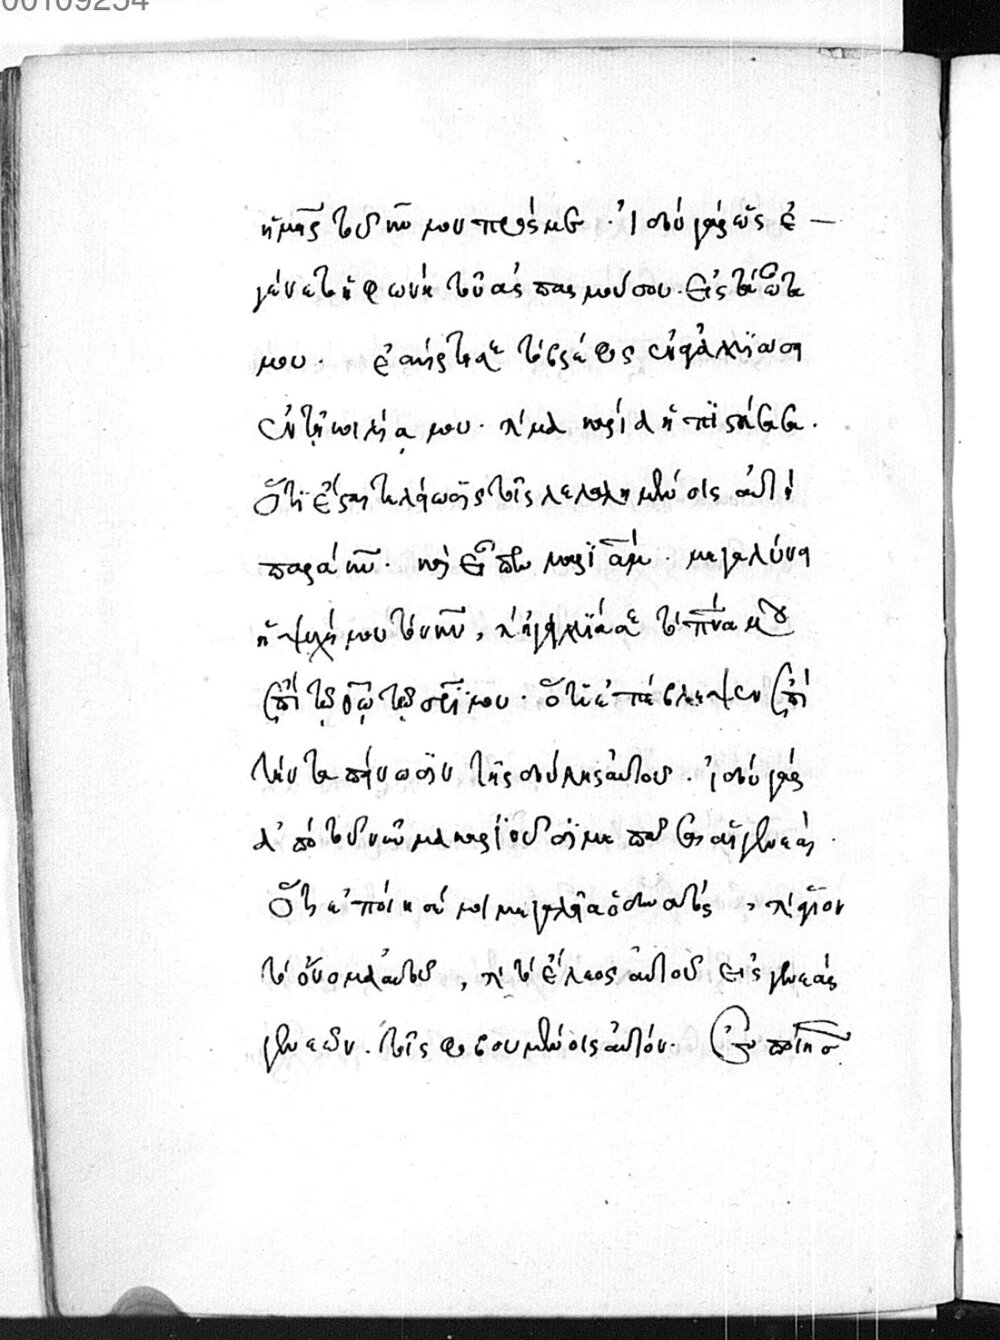 00109254
ἡ μηρ τοῦ κυ μου πρός με · ἰδοὺ γὰρ ὡς ἐ
γένετο ἡ φωνὴ τοῦ ἀσπασμοῦ σου · εἰς τὰ ὦτα
μου · ἐσκίρτησε τὸ βρέφος ἐν ἀγαλλιάσει
ἐν τῇ κοιλίᾳ μου · κ μακαρία ἡ πιστεύσασα ·
ὅτι ἔσται τελείωσις τοῖς λελαλημένοις αὐτῇ
παρὰ κυ · καὶ εἶπεν μαριάμ · μεγαλύνει
ἡ ψυχή μου τὸν κν, κ ἠγαλλίασε τὸ πνα μου
ἐπὶ τῷ θω τῷ σρι μου · ὅτι ἐπέβλεψεν ἐπὶ
τὴν ταπείνωσιν τῆς δούλης αὐτοῦ · ἰδοὺ γὰρ
ἀπὸ τοῦ νῦν μακαριοῦσί με πᾶσαι αἱ γενεαί ·
ὅτι ἐποίησέ μοι μεγαλεῖα ὁ δυνατός, κ ἅγιον
τὸ ὄνομα αὐτοῦ, κ τὸ ἔλεος αὐτοῦ εἰς γενεὰς
γενεῶν · τοῖς φοβουμένοις αὐτόν ·